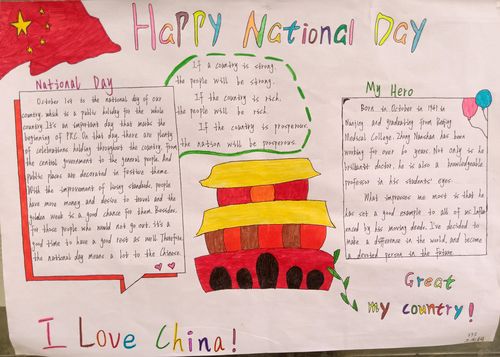 Happy National Day
National Day
October 1st is the national day of our
country, which is a public holiday for the whole
country. It's an important day that marks the
beginning of PRC. On that day, there are plenty
of celebrations holding throughout the country, from
the central government to the general people. And
public places are decorated in festive theme.
With the improvement of living standards, people
have more money and desire to travel and the
golden week is a good chance for them. Besides,
for those people who would not go out. It's a
good time to have a good rest as well. Therefore,
the national day means a lot to the Chinese.
If a country is strong,
the people will be strong.
If the country is rich,
the people will be rich.
If the country is prosperous,
the nation will be prosperous.
My Hero
Born in October in 1941 in
Nanjing and graduating from Beijing
Medical College, Zhong Nanshan has been
working for over 60 years. Not only is he
brilliant doctor, he is also a knowledgeable
professor in his students' eyes.
What impresses me most is that he
has set a good example to all of us. Influen
enced by his moving deeds, I've decided to
make a difference in the world, and become
a devoted person in the future.
Great
my country!
I Love China!